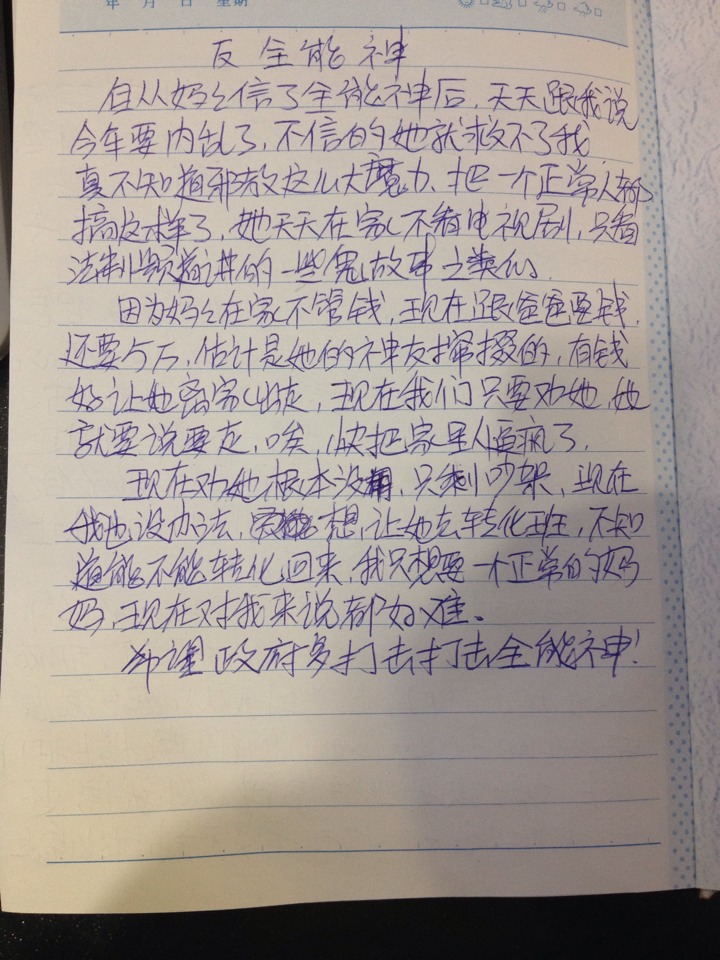 年 月 日 星期
反全能神
自从妈々信了全能神后,天天跟我说
今年要内乱了,不信的她就救不了我
真不知道邪教这么大魔力、把一个正常人都
搞成这样了,她天天在家不看电视剧,只看
法制频道讲的一些鬼故事之类的。
因为妈々在家不管钱,现在跟爸爸要钱,
还要5万,估计是她的神友撺掇的,有钱
好让她离家出走,现在我们只要劝她,她
就要说要走,唉,快把家里人逼疯了,
现在劝她根本没用,只剩吵架,现在
我也没办法,想让她去转化班,不知
道能不能转化回来,我只想要一个正常的妈
妈,现在对我来说都好难。
希望政府多打击打击全能神!